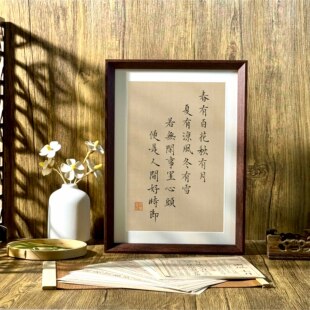 春有百花秋有月
夏有涼風冬有雪
若無閒事罣心頭
便是人間好時節